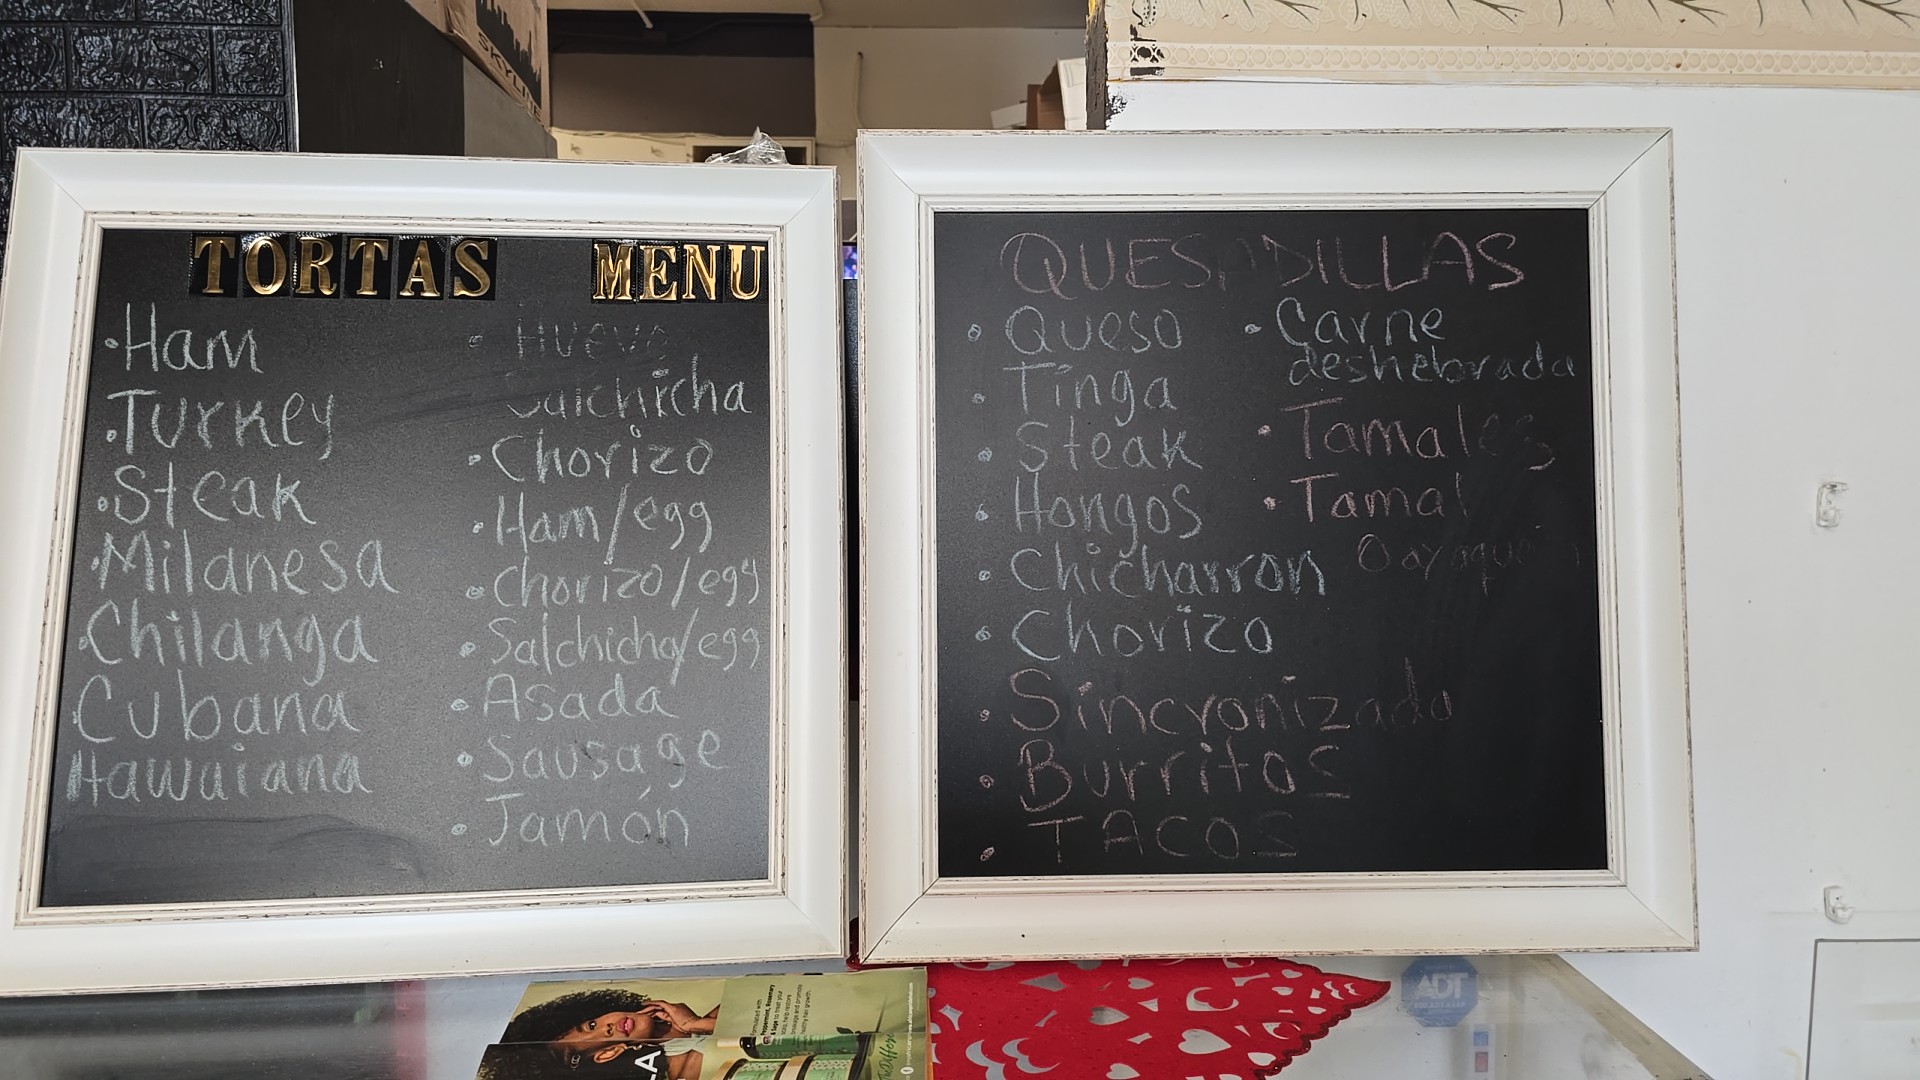 SKYLINE
TORTAS MENU
• Ham
• Turkey
• Steak
• Milanesa
• Chilanga
• Cubana
Hawaiana
• Huevo
Salchicha
• Chorizo
• Ham/egg
• Chorizo/egg
• Salchicha/egg
• Asada
• Sausage
• Jamón
QUESADILLAS
• Queso
• Tinga
• Steak
• Hongos
• Chicharron
• Chorizo
• Sincronizada
• Burritos
• TACOS
• Carne
deshebrada
• Tamales
• Tamal
ADT